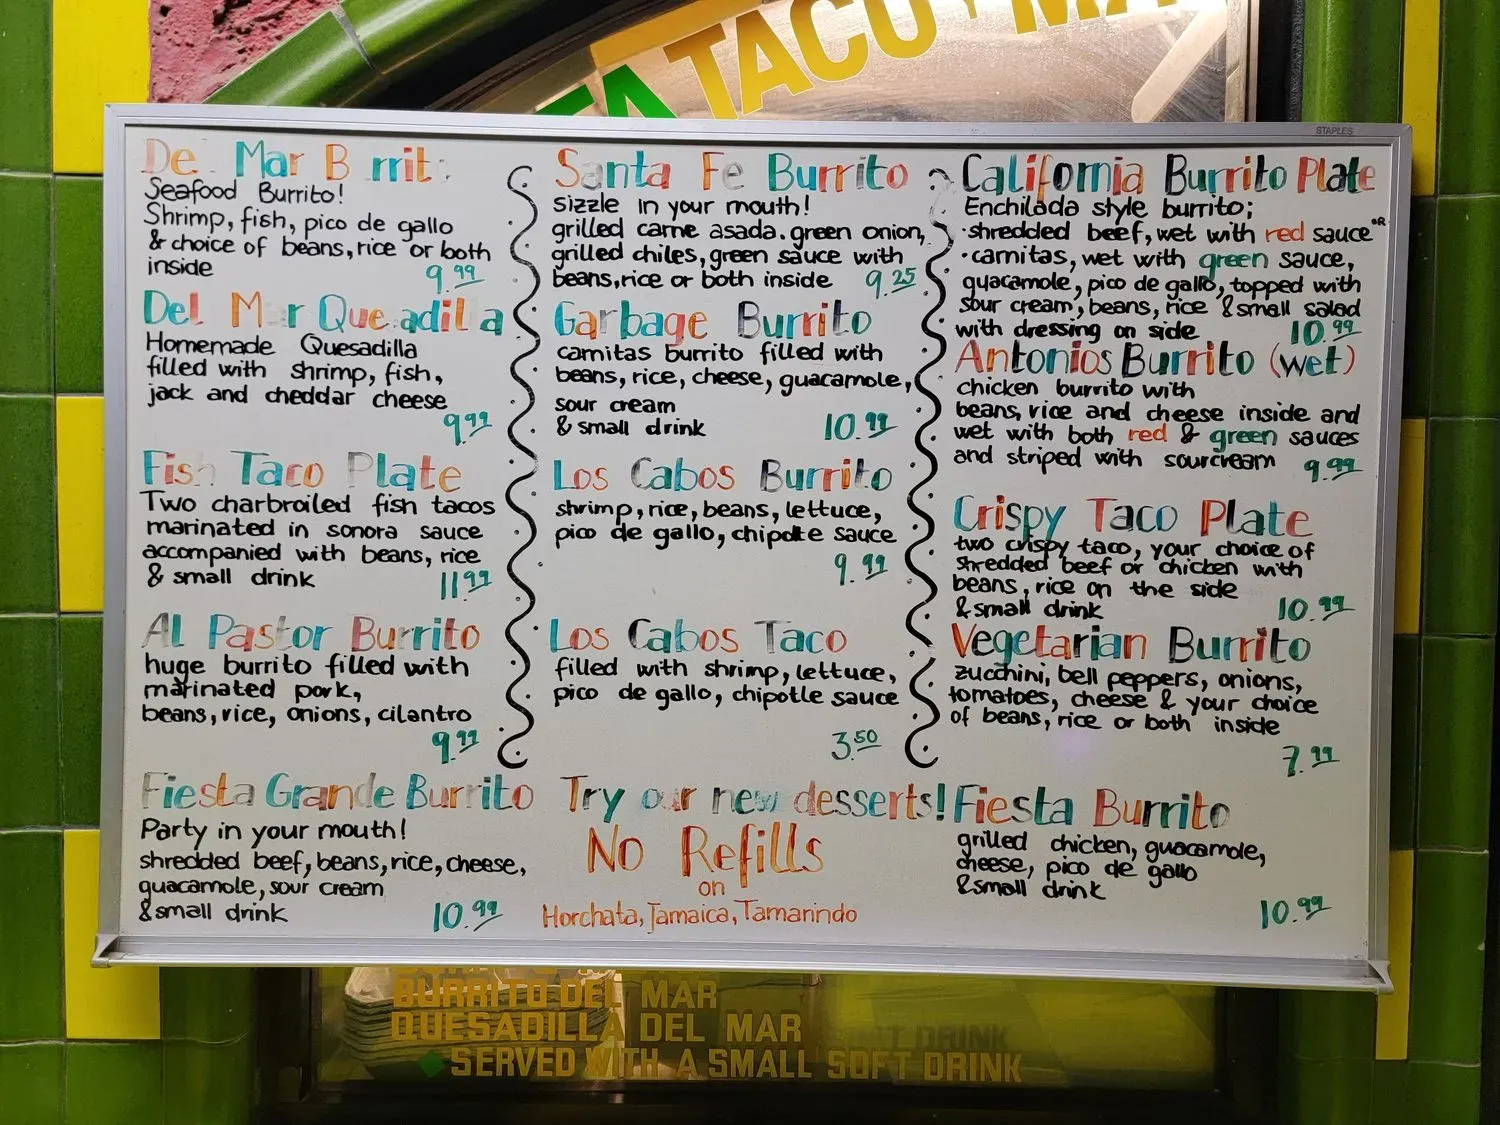 TACO
STAPLES
De Mar B rrit
Seafood Burrito!
Shrimp, fish, pico de gallo
& choice of beans, rice or both
inside
9.99
Del M r Que adilla
Homemade Quesadilla
filled with shrimp, fish,
jack and cheddar cheese
9.99
Fish Taco Plate
Two charbroiled fish tacos
marinated in sonora sauce
accompanied with beans, rice
& small drink
11.99
Al Pastor Burrito
huge burrito filled with
marinated pork,
beans, rice, onions, cilantro
9.99
Fiesta Grande Burrito
Party in your mouth!
shredded beef, beans, rice, cheese,
guacamole, sour cream
& small drink
10.99
Santa Fe Burrito
sizzle in your mouth!
grilled carne asada. green onion,
grilled chiles, green sauce with
beans, rice or both inside
9.25
Garbage Burrito
carnitas burrito filled with
beans, rice, cheese, guacamole,
sour cream
& small drink
10.99
Los Cabos Burrito
shrimp, rice, beans, lettuce,
pico de gallo, chipotle sauce
9.99
Los Cabos Taco
filled with shrimp, lettuce,
pico de gallo, chipotle sauce
3.50
Try our new desserts!
No Refills
on
Horchata, Jamaica, Tamarindo
California Burrito Plate
Enchilada style burrito;
·shredded beef, wet with red sauce "OR
·carnitas, wet with green sauce,
guacamole, pico de gallo, topped with
sour cream, beans, rice & small salad
with dressing on side
10.99
Antonios Burrito (wet)
chicken burrito with
beans, rice and cheese inside and
wet with both red & green sauces
and striped with sourcream
9.99
Crispy Taco Plate
two crispy taco, your choice of
shredded beef or chicken with
beans, rice on the side
& small drink
10.99
Vegetarian Burrito
zucchini, bell peppers, onions,
tomatoes, cheese & your choice
of beans, rice or both inside
7.99
Fiesta Burrito
grilled chicken, guacamole,
cheese, pico de gallo
& small drink
10.99
BURRITO DEL MAR
QUESADILLA DEL MAR
SERVED WITH A SMALL SOFT DRINK